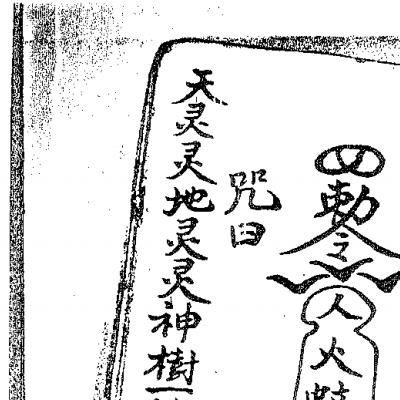 勅令
人火
咒曰
天灵灵地灵灵神樹